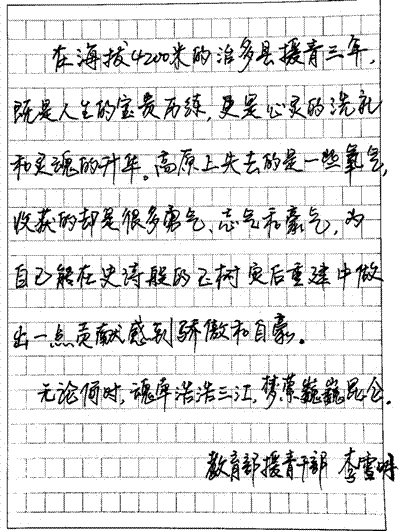 在海拔4200米的治多县援青三年，
既是人生的宝贵历练，更是心灵的洗礼
和灵魂的升华。高原上失去的是一些氧气，
收获的却是很多勇气、志气和豪气，为
自己能在史诗般的玉树灾后重建中做
出一点贡献感到骄傲和自豪。
无论何时，魂牵浩浩三江，梦萦巍巍昆仑。
教育部援青干部 李雪